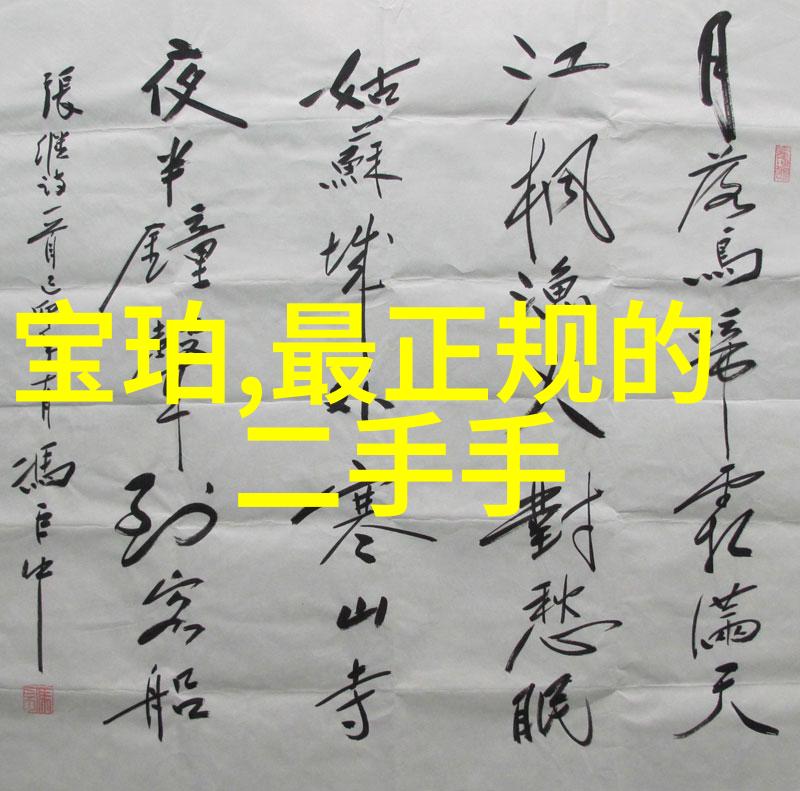 月落烏啼霜滿天
江楓漁火對愁眠
姑蘇城外寒山寺
夜半鐘聲到客船
張继诗一首己卯年十月馮
宝珀,最正规的
二手手